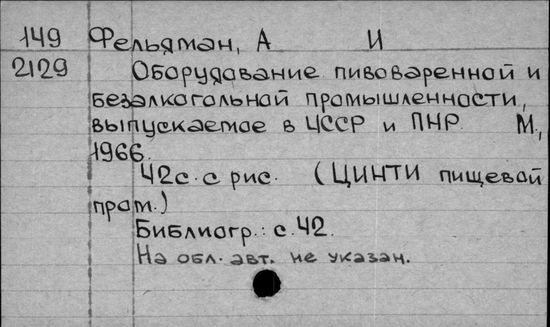 149 Фельдман, А И
2129 Оборудование пивоваренной и
безалкогольной промышленности,
выпускаемое в ЧССР и ПНР. М.,
1966.
42с. с рис. (ЦИНТИ пищевой
пром.)
Библиогр.: с. 42.
На обл. авт. не указан.